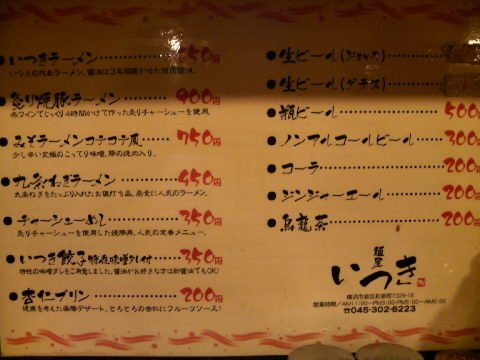 いつきラーメン 650円
いつきの代表ラーメン。醤油は3年間寝かせた甘露醤油。
炙り焼豚ラーメン 900円
赤ワインでじっくり4時間かけて作った炙りチャーシューを使用。
みそラーメンコテコテ風 750円
少し辛い究極のこってり味噌、豚の焼肉入り。
九条ねぎラーメン 450円
九条ねぎをたっぷり入れたお値打ち品。昼食に人気のラーメン。
チャーシューめし 350円
炙りチャーシューを使用した焼豚丼。人気の定番メニュー。
いつき餃子 味噌ダレ付 350円
特性の味噌ダレをご用意しました。醤油がお好きな方は酢醤油でもOK!
杏仁プリン 200円
健康を考えた薬膳デザート。とろとろの杏仁にフルーツソース!
生ビール(ジョッキ)
生ビール(グラス)
瓶ビール 500円
ノンアルコールビール 300円
コーラ 200円
ジンジャーエール 200円
烏龍茶 200円
麺屋
いつき
横浜市泉区和泉町7329-16
営業時間/AM11:00~PM3:00・PM5:00~AM0:00
☎045-302-6223